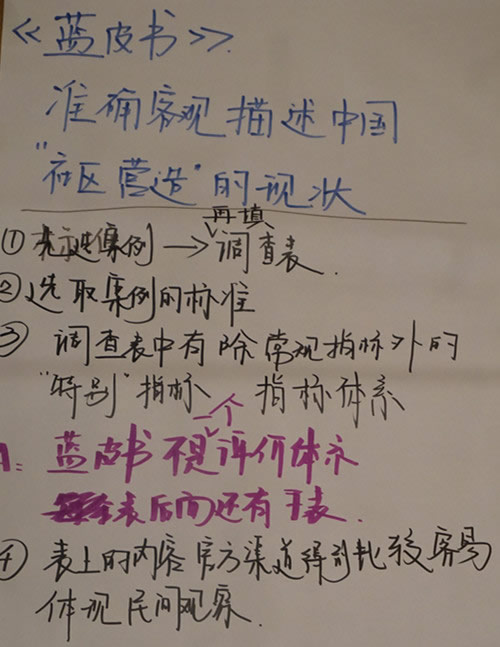 《蓝皮书》.
准确客观描述中国
"社区营造"的现状
再填
①先选案例→调查表.
②选取案例的标准
③ 调查表中有除常规指标外的
"特别"指标 指标体系
一个
A: 蓝皮书不是评价体系
表后面还有子表.
④ 表上的内容官方渠道得到比较容易
体现民间观察.